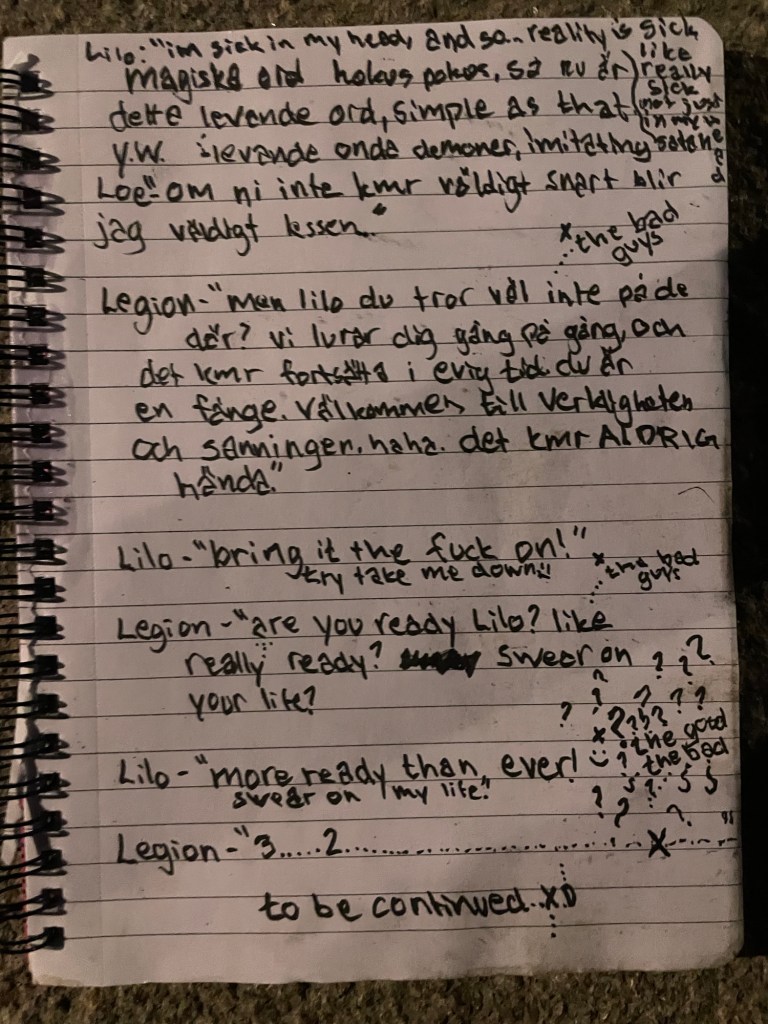 Lilo: "im sick in my head, and so.. reality is sick
magiska ord hokus pokus, så nu är
like really sick (not just in my head
dette levende ord, simple as that
Y.W. ilevande onda demoner, imitating
Loe-"om ni inte kmr väldigt snart blir
jag väldigt lessen."
x the bad
guys
Legion-"men lilo du tror väl inte på de
där? vi lurar dig gång på gång, och
det kmr fortsätta i evig tid. du är
en fånge. välkommen till verkligheten
och sanningen. haha. det kmr ALDRIG
hända."
Lilo-"bring it the fuck on!"
try take me down!!
x the bad
guys
Legion-"are you ready Lilo? like
really ready? swear on ? ? ?
your life?
? ? ? ? ? ?
x ? ? ? ?
Lilo-"more ready than, ever! :) ? the good
the bad
swear on my life!
? ? ? ? ?
Legion-"3.....2.................................X-----"
to be continued..XD